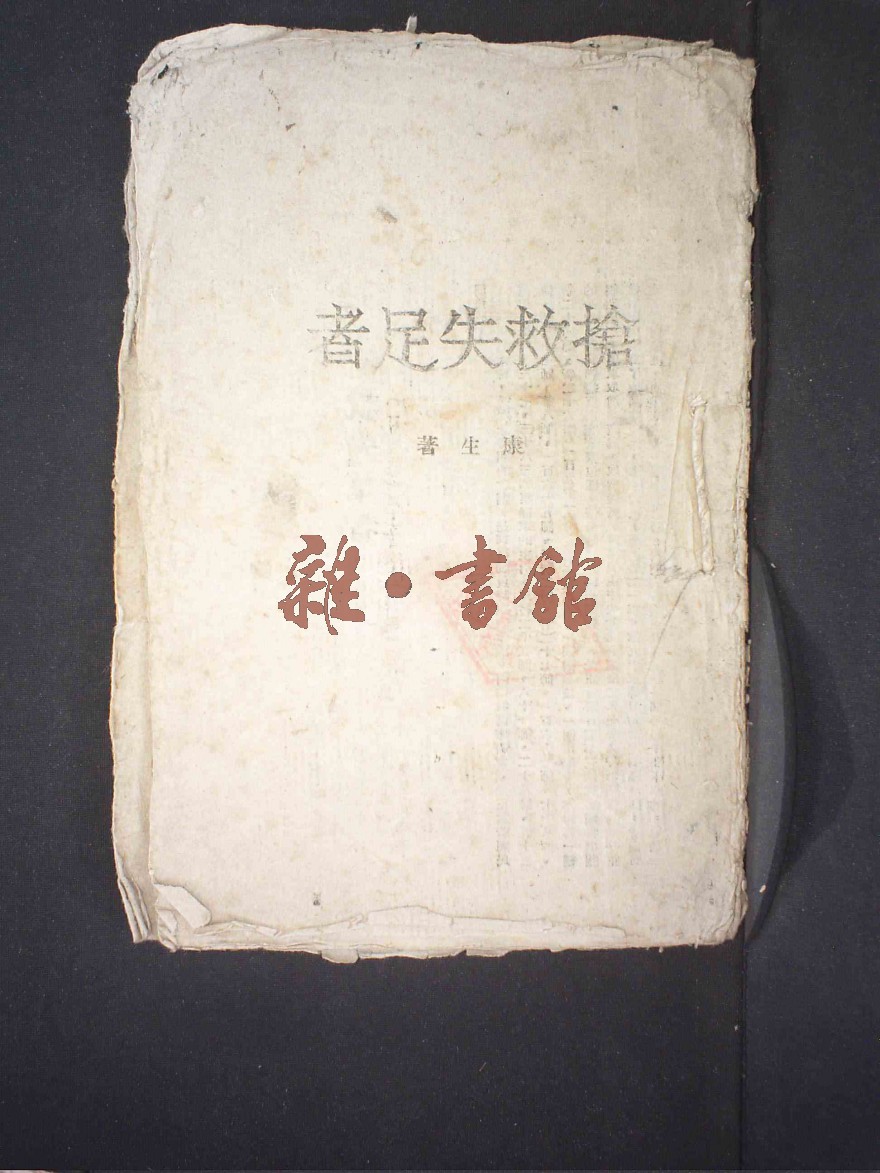 搶救失足者
康生著
雜·書館